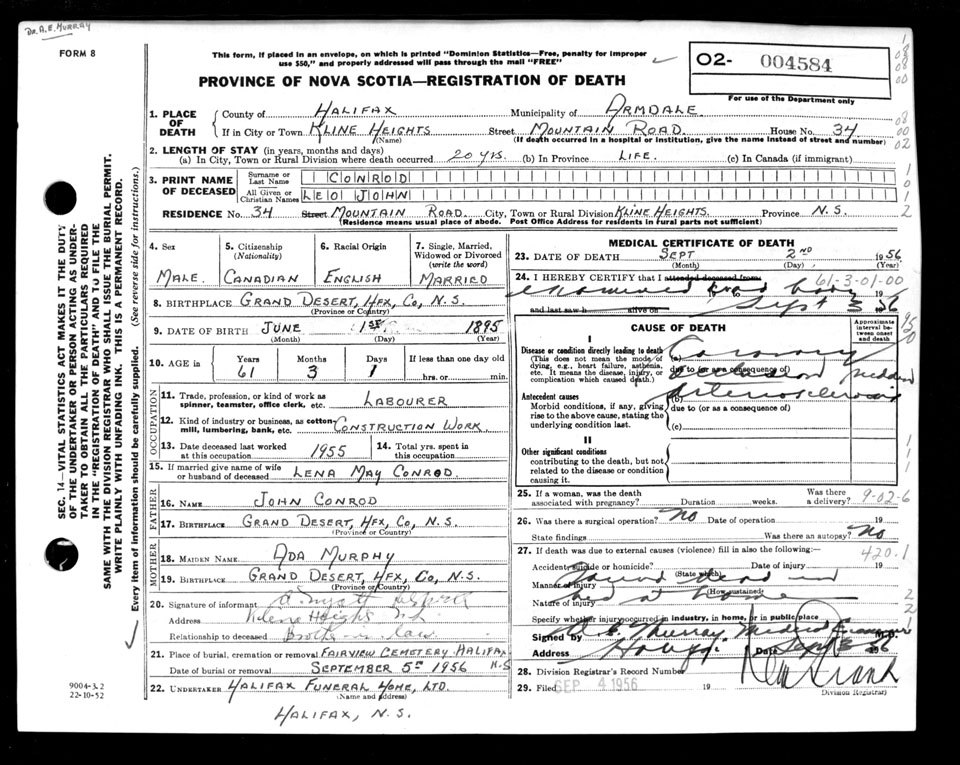 Dr. A. E. MURRAY
FORM 8
This form, if placed in an envelope, on which is printed "Dominion Statistics—Free, penalty for improper
use $50," and properly addressed will pass through the mail "FREE"
PROVINCE OF NOVA SCOTIA—REGISTRATION OF DEATH
02- 004584
For use of the Department only
1. PLACE OF DEATH
County of HALIFAX Municipality of ARMDALE
If in City or Town KLINE HEIGHTS Street MOUNTAIN ROAD House No. 34
(Name) (If death occurred in a hospital or institution, give the name instead of street and number)
2. LENGTH OF STAY (in years, months and days)
(a) In City, Town or Rural Division where death occurred 20 yrs. (b) In Province LIFE. (c) In Canada (if immigrant)
3. PRINT NAME OF DECEASED
Surname or Last Name CONROD
All Given or Christian Names LEO JOHN
RESIDENCE No. 34 Street MOUNTAIN ROAD. City, Town or Rural Division KLINE HEIGHTS. Province N.S.
(Residence means usual place of abode. Post Office Address for residents in rural parts not sufficient)
4. Sex MALE.
5. Citizenship (Nationality) CANADIAN
6. Racial Origin ENGLISH
7. Single, Married, Widowed or Divorced (write the word) MARRIED
8. BIRTHPLACE GRAND DESERT, HFX, CO, N.S.
(Province or Country)
9. DATE OF BIRTH JUNE 1ST 1895
(Month) (Day) (Year)
10. AGE in Years 61 Months 3 Days 1 If less than one day old hrs. or min.
OCCUPATION
11. Trade, profession, or kind of work as spinner, teamster, office clerk, etc. LABOURER
12. Kind of industry or business, as cotton-mill, lumbering, bank, etc. CONSTRUCTION WORK
13. Date deceased last worked at this occupation 1955
14. Total yrs. spent in this occupation
15. If married give name of wife or husband of deceased LENA MAY CONROD.
FATHER
16. NAME JOHN CONROD
17. BIRTHPLACE GRAND DESERT, HFX, CO, N.S.
(Province or Country)
MOTHER
18. MAIDEN NAME ADA MURPHY
19. BIRTHPLACE GRAND DESERT, HFX, CO, N.S.
(Province or Country)
20. Signature of informant
Address Kline Heights
Relationship to deceased Brother in law
21. Place of burial, cremation or removal FAIRVIEW CEMETERY HALIFAX N.S
Date of burial or removal SEPTEMBER 5TH 1956
22. UNDERTAKER HALIFAX FUNERAL HOME, LTD.
(Name and Address)
HALIFAX, N.S.
MEDICAL CERTIFICATE OF DEATH
23. DATE OF DEATH SEPT 2ND 1956
(Month) (Day) (Year)
24. I HEREBY CERTIFY that I attended deceased from 61-3-01-00
examined dead body
to Sept 3 1956
and last saw h alive on
CAUSE OF DEATH
Approximate interval between onset and death
I
Disease or condition directly leading to death
(This does not mean the mode of dying, e.g., heart failure, asthenia, etc. It means the disease, injury, or complication which caused death.)
(a) Coronary
due to (or as a consequence of) occlusion sudden
Antecedent causes
Morbid conditions, if any, giving rise to the above cause, stating the underlying condition last.
(b) Arteriosclerosis
due to (or as a consequence of)
(c)
II
Other significant conditions
contributing to the death, but not related to the disease or condition causing it.
25. If a woman, was the death associated with pregnancy? Duration weeks. Was there a delivery? 9-02-6
26. Was there a surgical operation? No Date of operation 19
State findings Was there an autopsy? No
27. If death was due to external causes (violence) fill in also the following:— 420.1
Accident, suicide or homicide? Date of injury 19
(State which)
Manner of injury Found dead in
(How sustained)
Nature of injury bed at home
Specify whether injury occurred in industry, in home, or in public place
Signed by A. E. Murray, Medical Examiner M.D.
Address Halifax Date Sept 3 1956
28. Division Registrar's Record Number
29. Filed SEP 4 1956 19
Division Registrar)
SEC. 14—VITAL STATISTICS ACT MAKES IT THE DUTY
OF THE UNDERTAKER OR PERSON ACTING AS UNDER-
TAKER TO OBTAIN ALL THE PARTICULARS REQUIRED
IN THE "REGISTRATION OF DEATH" AND TO FILE THE
SAME WITH THE DIVISION REGISTRAR WHO SHALL ISSUE THE BURIAL PERMIT.
WRITE PLAINLY WITH UNFADING INK. THIS IS A PERMANENT RECORD.
Every item of information should be carefully supplied. (See reverse side for instructions.)
9004-3.2
22-10-52